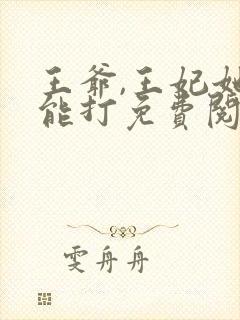 王爷,王妃她
能打免费阅
雯舟舟